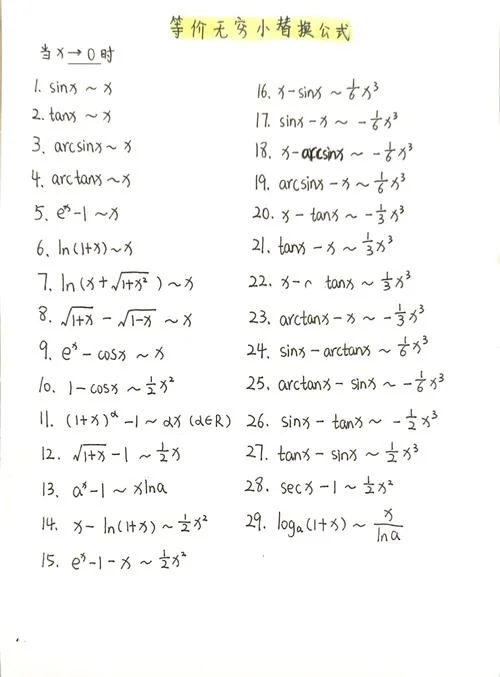 等价无穷小替换公式
当 x→0 时
1. sinx ~ x
2. tanx ~ x
3. arcsinx ~ x
4. arctanx ~ x
5. eˣ-1 ~ x
6. ln(1+x) ~ x
7. ln(x+√(1+x²)) ~ x
8. √(1+x) - √(1-x) ~ x
9. eˣ - cosx ~ x
10. 1-cosx ~ ½x²
11. (1+x)^α -1 ~ αx (α∈R)
12. √(1+x) -1 ~ ½x
13. aˣ-1 ~ xlna
14. x-ln(1+x) ~ ½x²
15. eˣ-1-x ~ ½x²
16. x-sinx ~ ⅙x³
17. sinx-x ~ -⅙x³
18. x-arcsinx ~ -⅙x³
19. arcsinx-x ~ ⅙x³
20. x-tanx ~ -⅓x³
21. tanx-x ~ ⅓x³
22. x- tanx ~ ⅓x³
23. arctanx-x ~ -⅓x³
24. sinx-arctanx ~ ⅙x³
25. arctanx-sinx ~ -⅙x³
26. sinx-tanx ~ -½x³
27. tanx-sinx ~ ½x³
28. secx-1 ~ ½x²
29. logₐ(1+x) ~ x/lna